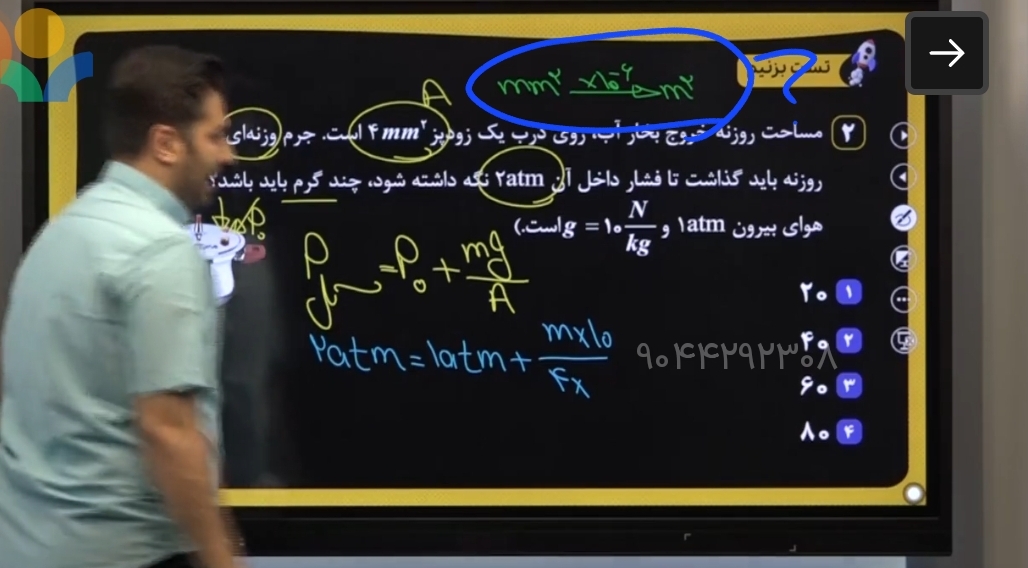 تست بزنید
mm² ×۱۰⁻⁶ m²
A
۲ مساحت روزنه خروج بخار آب، روی درب یک زودپز ۴ mm² است. جرم وزنه‌ای
روزنه باید گذاشت تا فشار داخل آن ۲atm نگه داشته شود، چند گرم باید باشد؟
هوای بیرون ۱atm و g = ۱۰ N/kg است.)
P = P₀ + mg/A
P₀
۲atm = ۱atm + m×۱۰/۴×
۹۰۴۴۲۹۲۳۰۸
۱ ۲۰
۲ ۴۰
۳ ۶۰
۴ ۸۰